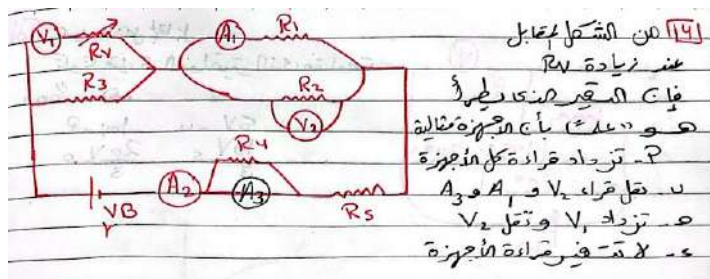 ١٤ من الشكل المقابل
عند زيادة RV
فإن التغير الذى يطرأ
هو "علمًا" بأن الأجهزة مثالية
P- تزداد قراءة كل الأجهزة
ب- تقل قراء V2 و A1 و A3
ج- تزداد V1 وتقل V2
د- لا تتغير قراءة الأجهزة
V1
RV
R3
A1
R1
R2
V2
R4
A2
A3
VB
r
R5